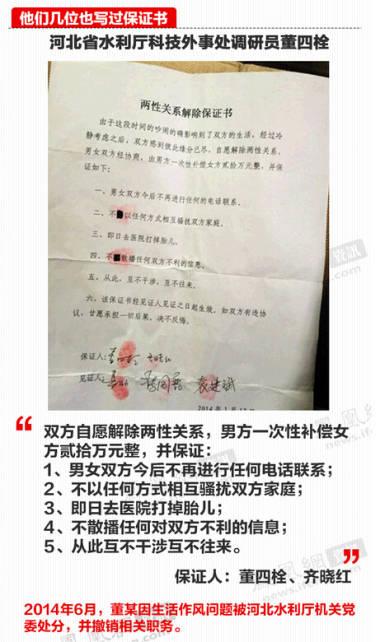 他们几位也写过保证书
河北省水利厅科技外事处调研员董四栓
两性关系解除保证书
由于这段时间的吵闹的确影响到了双方的生活，经过冷
静考虑之后，双方感到彼此缘分已尽，自愿解除两性关系，
男女双方经协商，由男方一次性补偿女方贰拾万元整，并保
证如下：
一、男女双方今后不再进行任何的电话联系。
二、不以任何方式相互骚扰双方家庭。
三、即日去医院打掉胎儿。
四、不散播任何双方不利的信息。
五、从此，互不干涉，互不往来。
六、该保证书经见证人见证之日起生效，如双方有违协
议，甘愿承担一切后果，决不反悔。
保证人：
见证人：
2014年1月
“
双方自愿解除两性关系，男方一次性补偿女
方贰拾万元整，并保证：
1、男女双方今后不再进行任何电话联系；
2、不以任何方式相互骚扰双方家庭；
3、即日去医院打掉胎儿；
4、不散播任何对双方不利的信息；
5、从此互不干涉互不往来。
”
保证人：董四栓、齐晓红
2014年6月，董某因生活作风问题被河北水利厅机关党
委处分，并撤销相关职务。